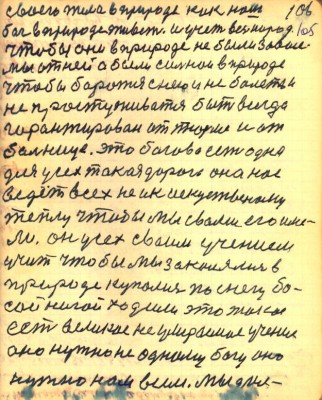 своего тела в природе как наш 106
бог в природе живет. и учет всенарод. 105
чтобы они в природе не были зовие-
мы от ней а были силной в природе
чтобы боротся с нею и не болеть и
не простуживатся быть всегда
гарантирован от и от
Это богова есть одна
для усех такая дорога она нас
ведёт всех не ик искуственому
теплу чтобы мы своем его име-
ли. он усех своим учением
учит чтобы мы закалялис в
природе купалис по снегу бо-
сой ногой ходили это такое
ест великое не умираемое учение
оно нужно не одному богу оно
нужно нам всем. мы для-